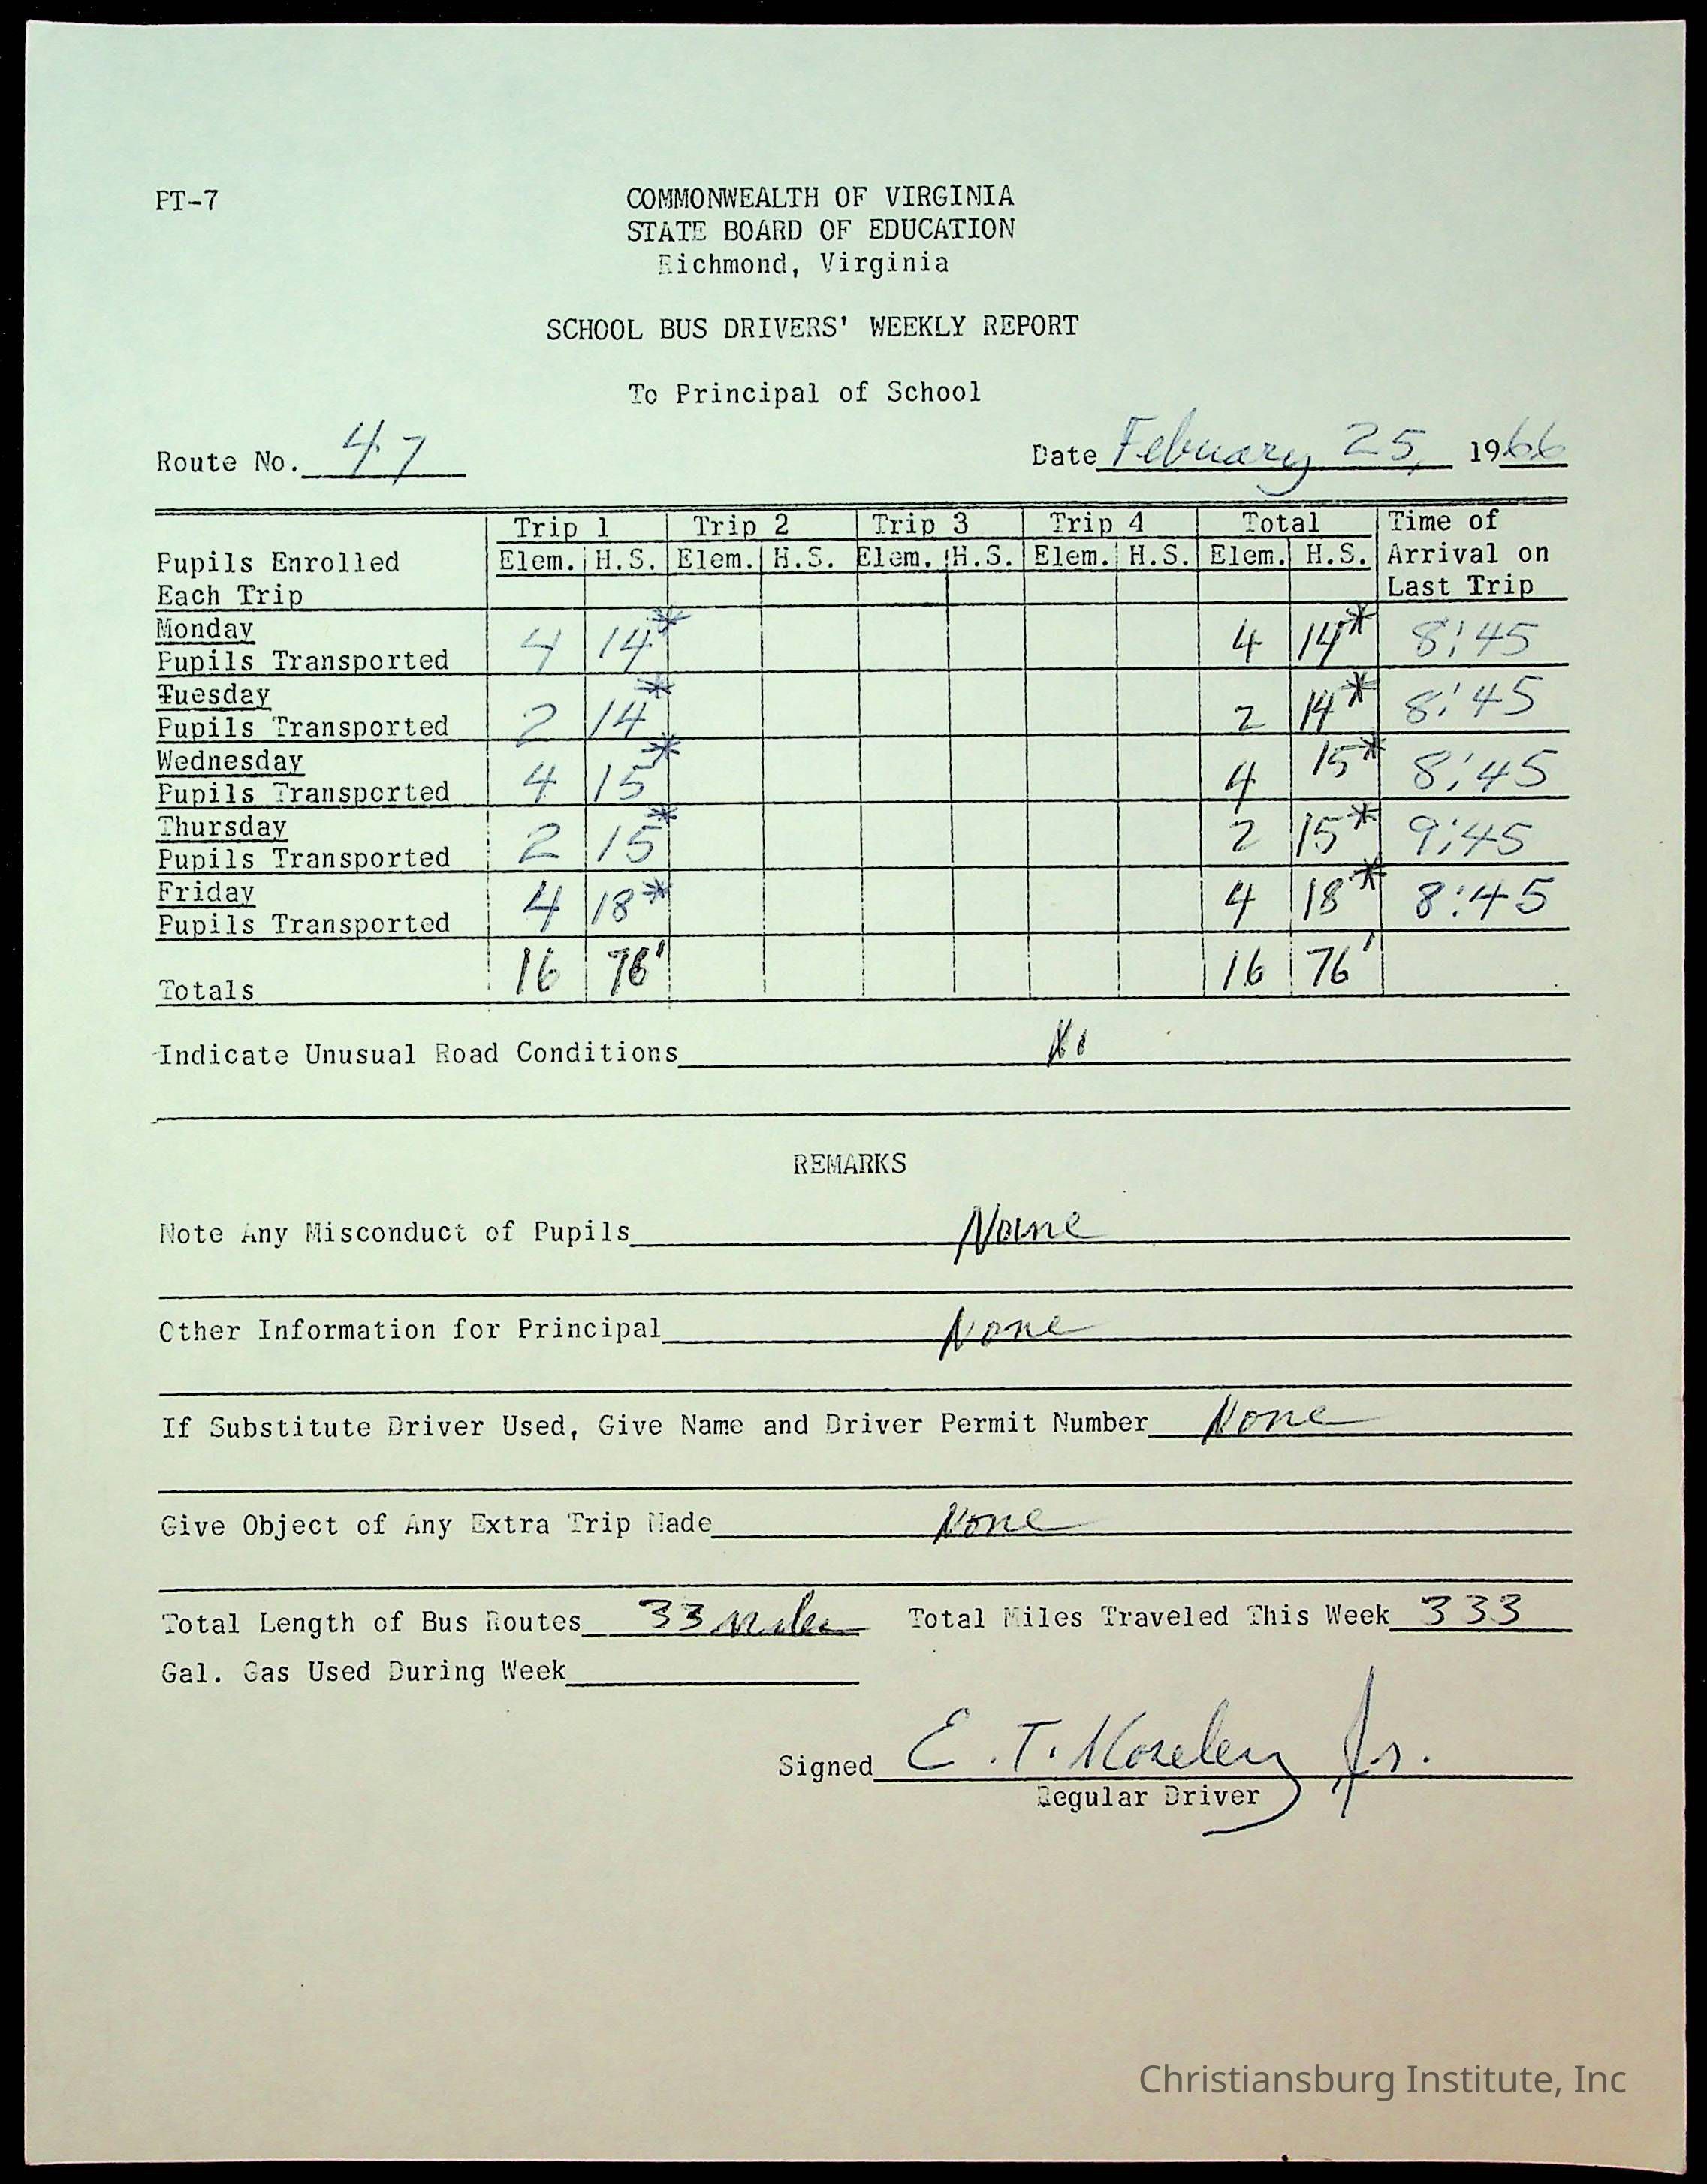 PT-7
COMMONWEALTH OF VIRGINIA
STATE BOARD OF EDUCATION
Richmond, Virginia
SCHOOL BUS DRIVERS' WEEKLY REPORT
To Principal of School
Route No. 47 Date February 25, 1966
Trip 1 Trip 2 Trip 3 Trip 4 Total Time of
Pupils Enrolled Elem. H.S. Elem. H.S. Elem. H.S. Elem. H.S. Elem. H.S. Arrival on
Each Trip Last Trip
Monday
Pupils Transported 4 14* 4 14* 8:45
Tuesday
Pupils Transported 2 14* 2 14* 8:45
Wednesday
Pupils Transported 4 15* 4 15* 8:45
Thursday
Pupils Transported 2 15* 2 15* 9:45
Friday
Pupils Transported 4 18* 4 18* 8:45
Totals 16 76' 16 76'
Indicate Unusual Road Conditions
REMARKS
Note Any Misconduct of Pupils None
Other Information for Principal None
If Substitute Driver Used, Give Name and Driver Permit Number None
Give Object of Any Extra Trip Made None
Total Length of Bus Routes 33 miles Total Miles Traveled This Week 333
Gal. Gas Used During Week
Signed E. T. Moseley Jr.
Regular Driver
Christiansburg Institute, Inc